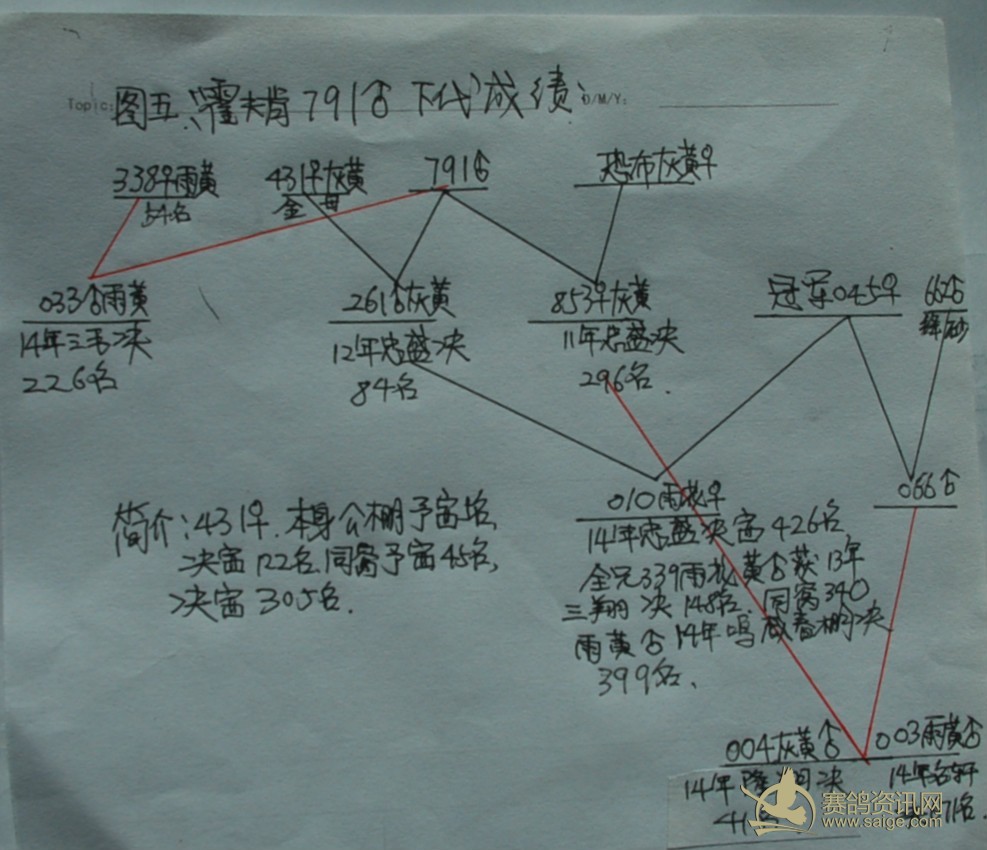 Topic: 图五、霍夫肯791♂下代成绩: D/M/Y:
338♀雨黄 431♀灰黄 791♂ 恐怖灰黄♀
54名 金母
033♂雨黄 261♂灰黄 853♀灰黄 冠军045♀ 662♂
14年三毛决 12年忠盛决 11年忠盛决
226名 84名 296名.
066♂
010雨花♀
简介:431♀.本身公棚予赛 名, 14年忠盛决赛426名
决赛122名.同窝予赛45名, 全兄339雨花黄♂获13年
决赛305名. 三翔决148名.同窝340
雨黄♂14年鸣 春棚决
399名.
004灰黄♂ 003雨黄♂
14年隆翔决 14年名轩
赛鸽资讯网
www.saige.com